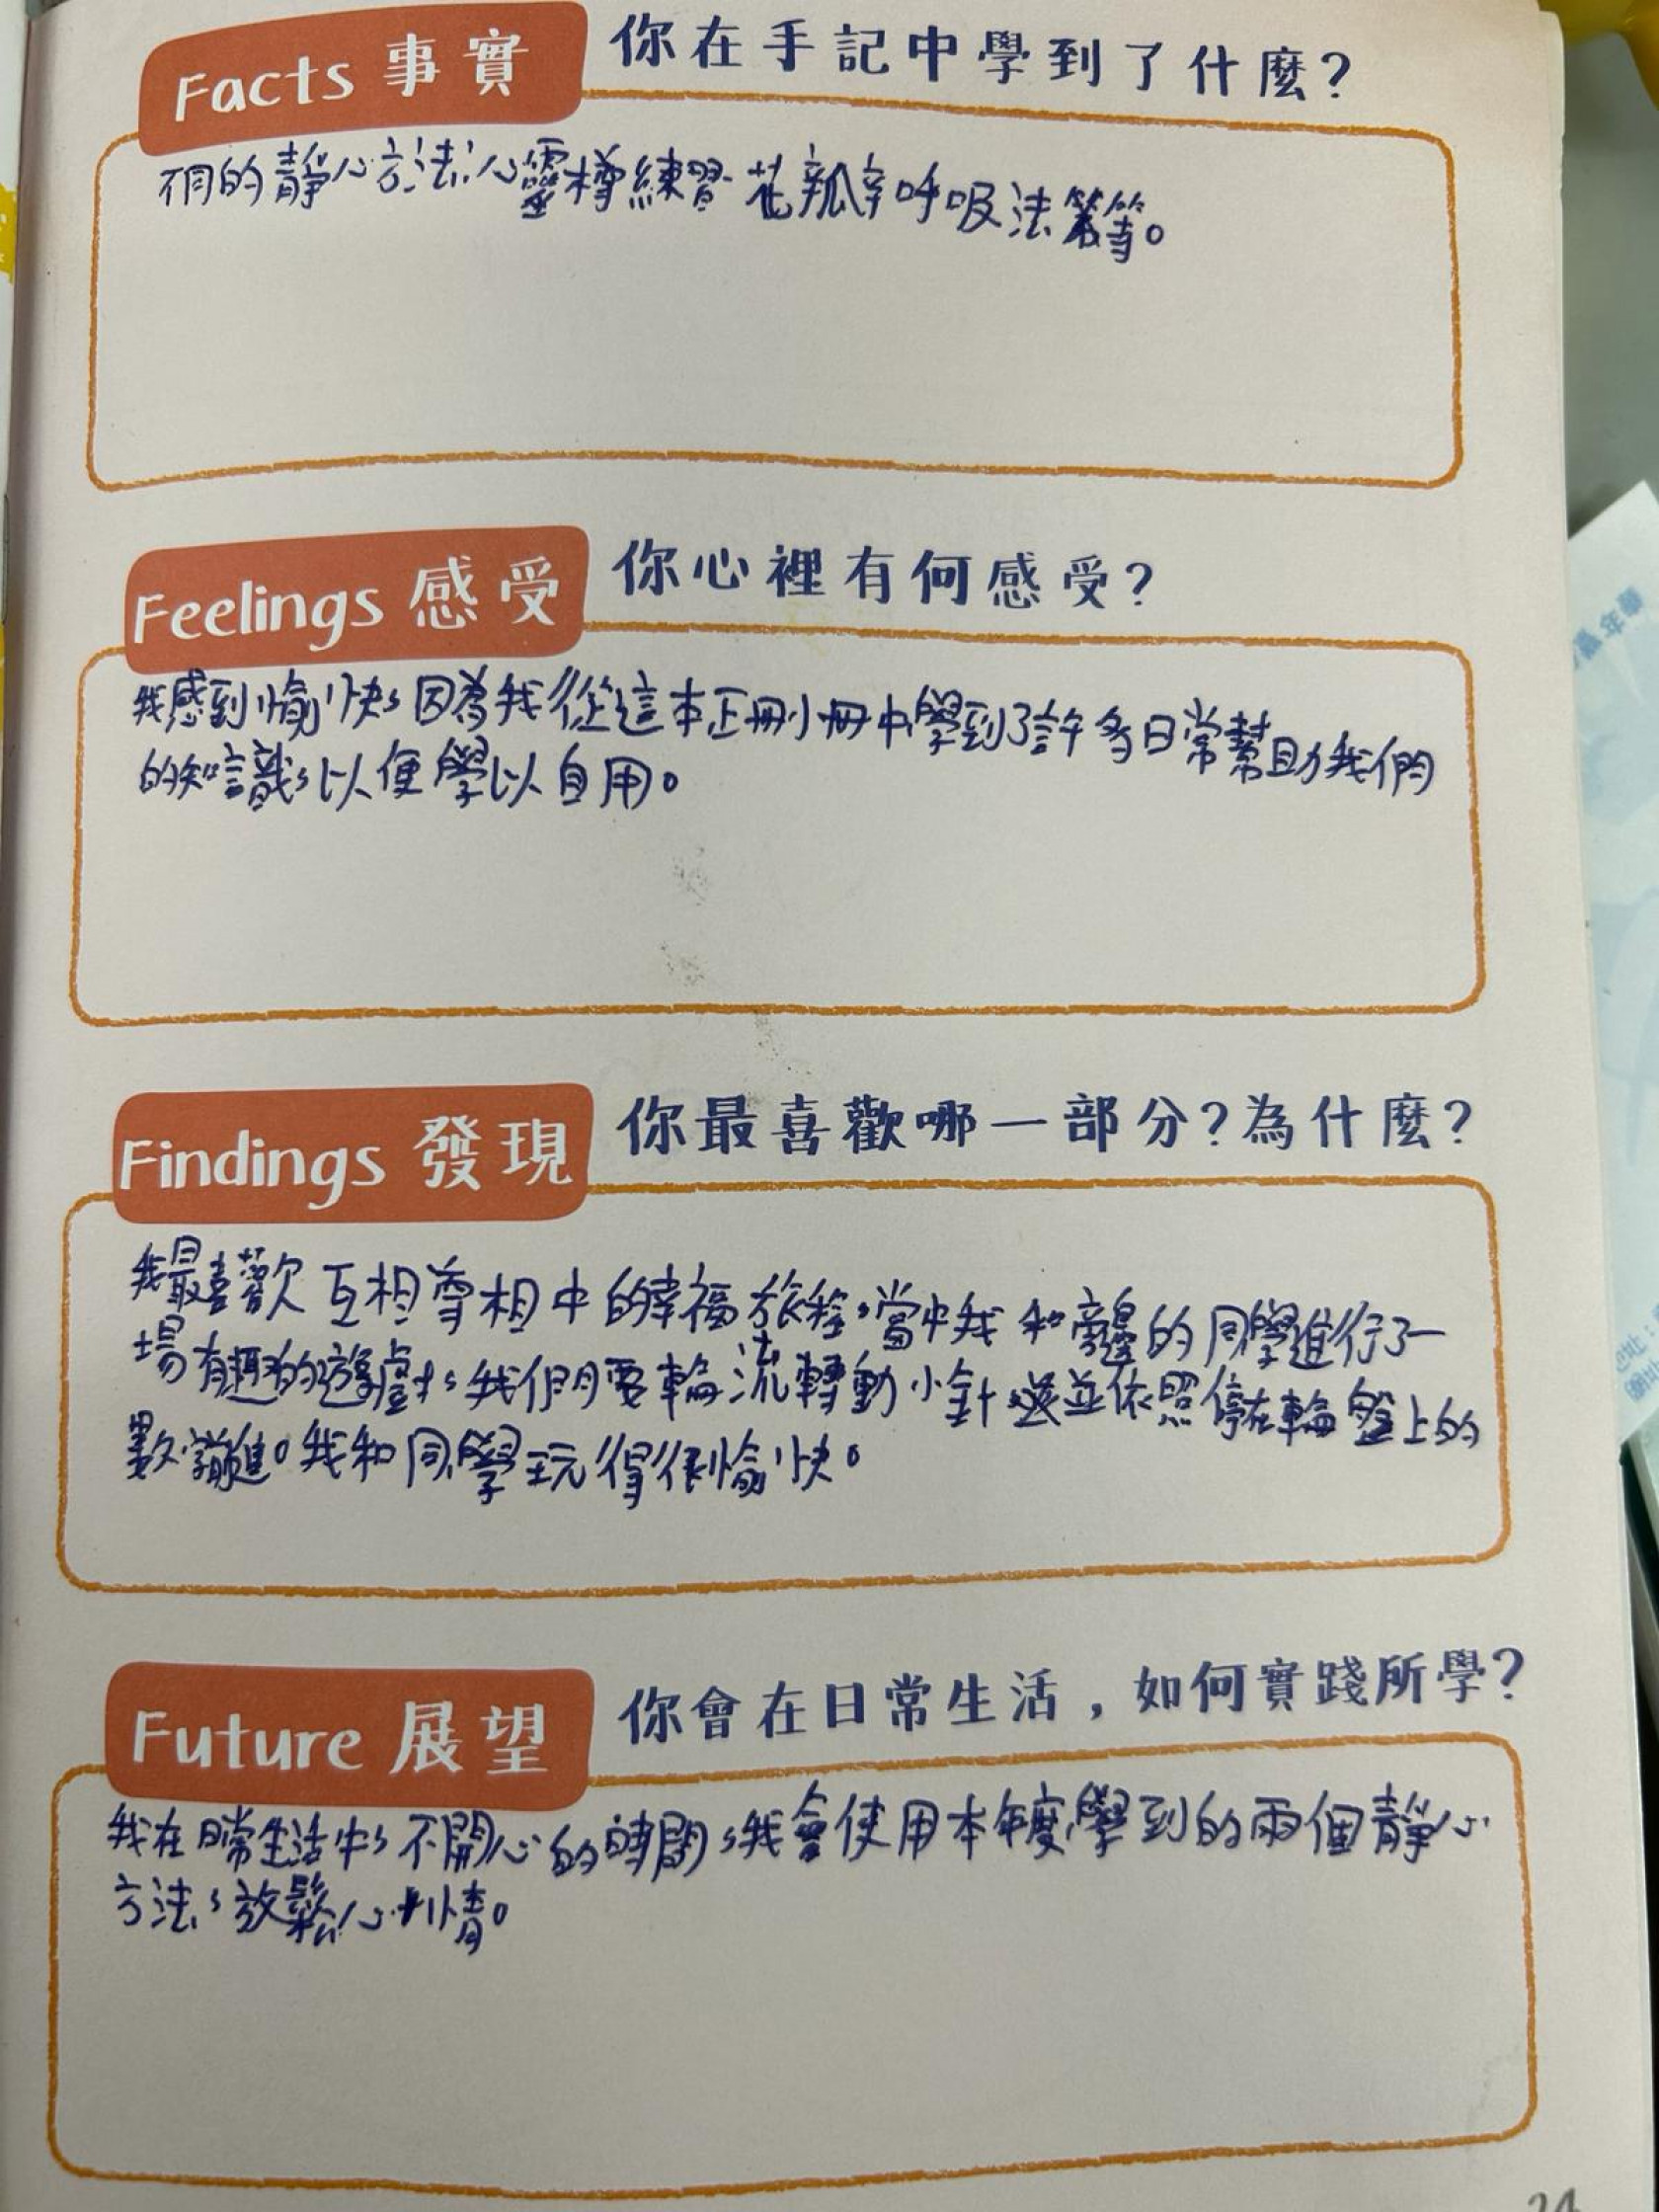 Facts 事實 你在手記中學到了什麼?
不同的靜心方法,心靈樽練習、花瓣呼吸法等。
Feelings 感受 你心裡有何感受?
我感到愉快,因為我從這本正冊小冊中學到了許多日常幫助我們
的知識,以便學以自用。
Findings 發現 你最喜歡哪一部分?為什麼?
我最喜歡互相尊相中的幸福旅程,當中我和旁邊的同學進行了一
場有趣的遊戲,我們要輪流轉動小針並依照停在輪盤上的
數字前進。我和同學玩得很愉快。
Future 展望 你會在日常生活,如何實踐所學?
我在日常生活中,不開心的時間,我會使用本年度學到的兩個靜心
方法,放鬆心情。
24